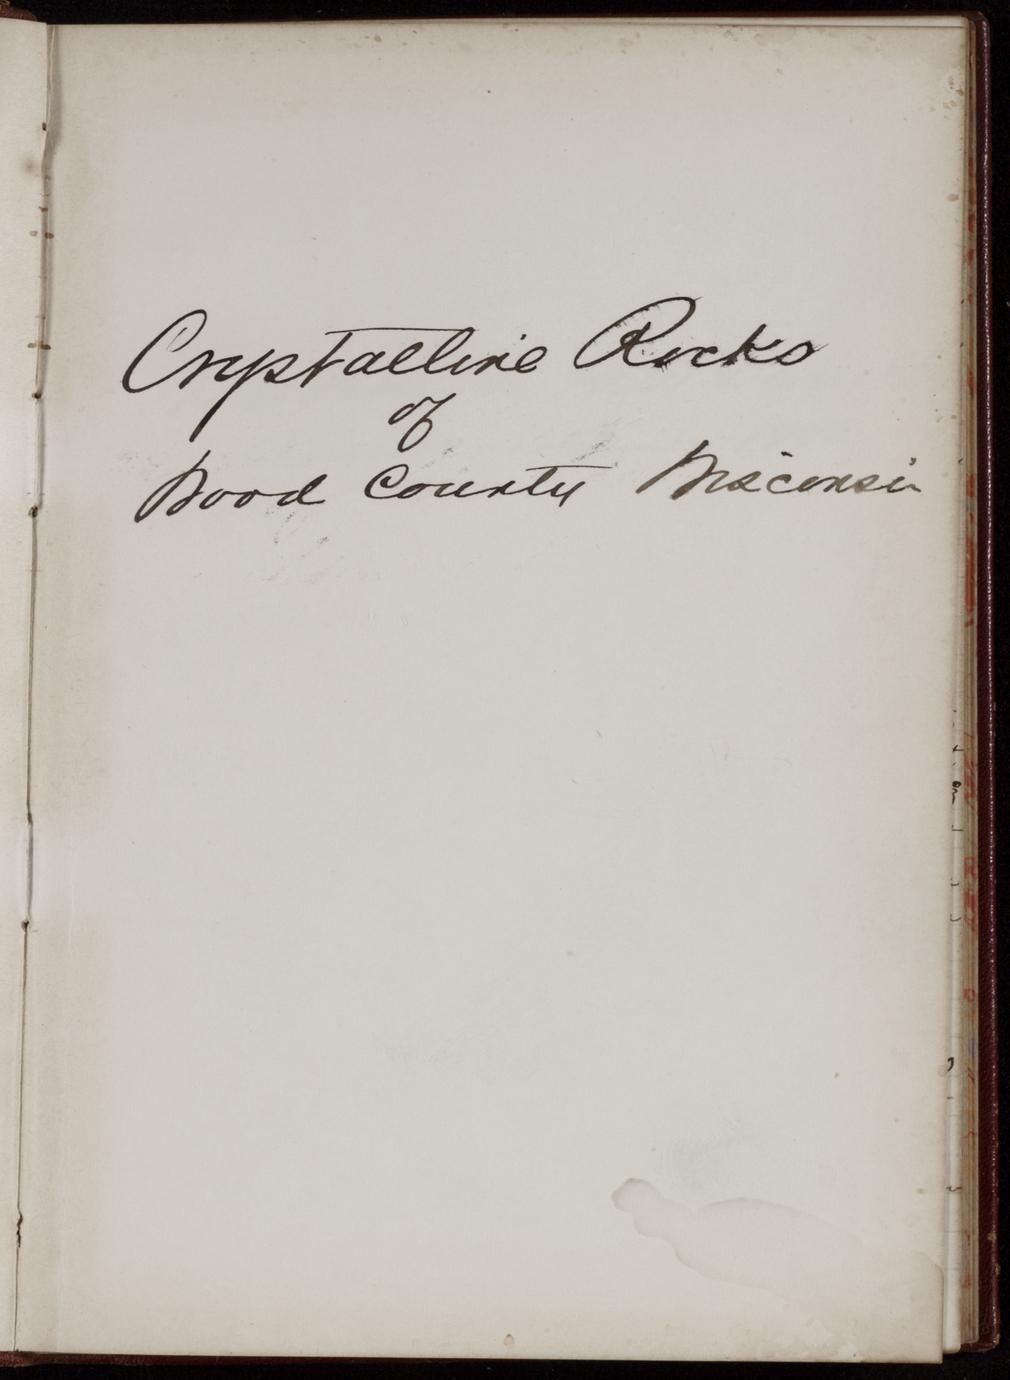 Crystalline Rocks
of
Wood County Wisconsin